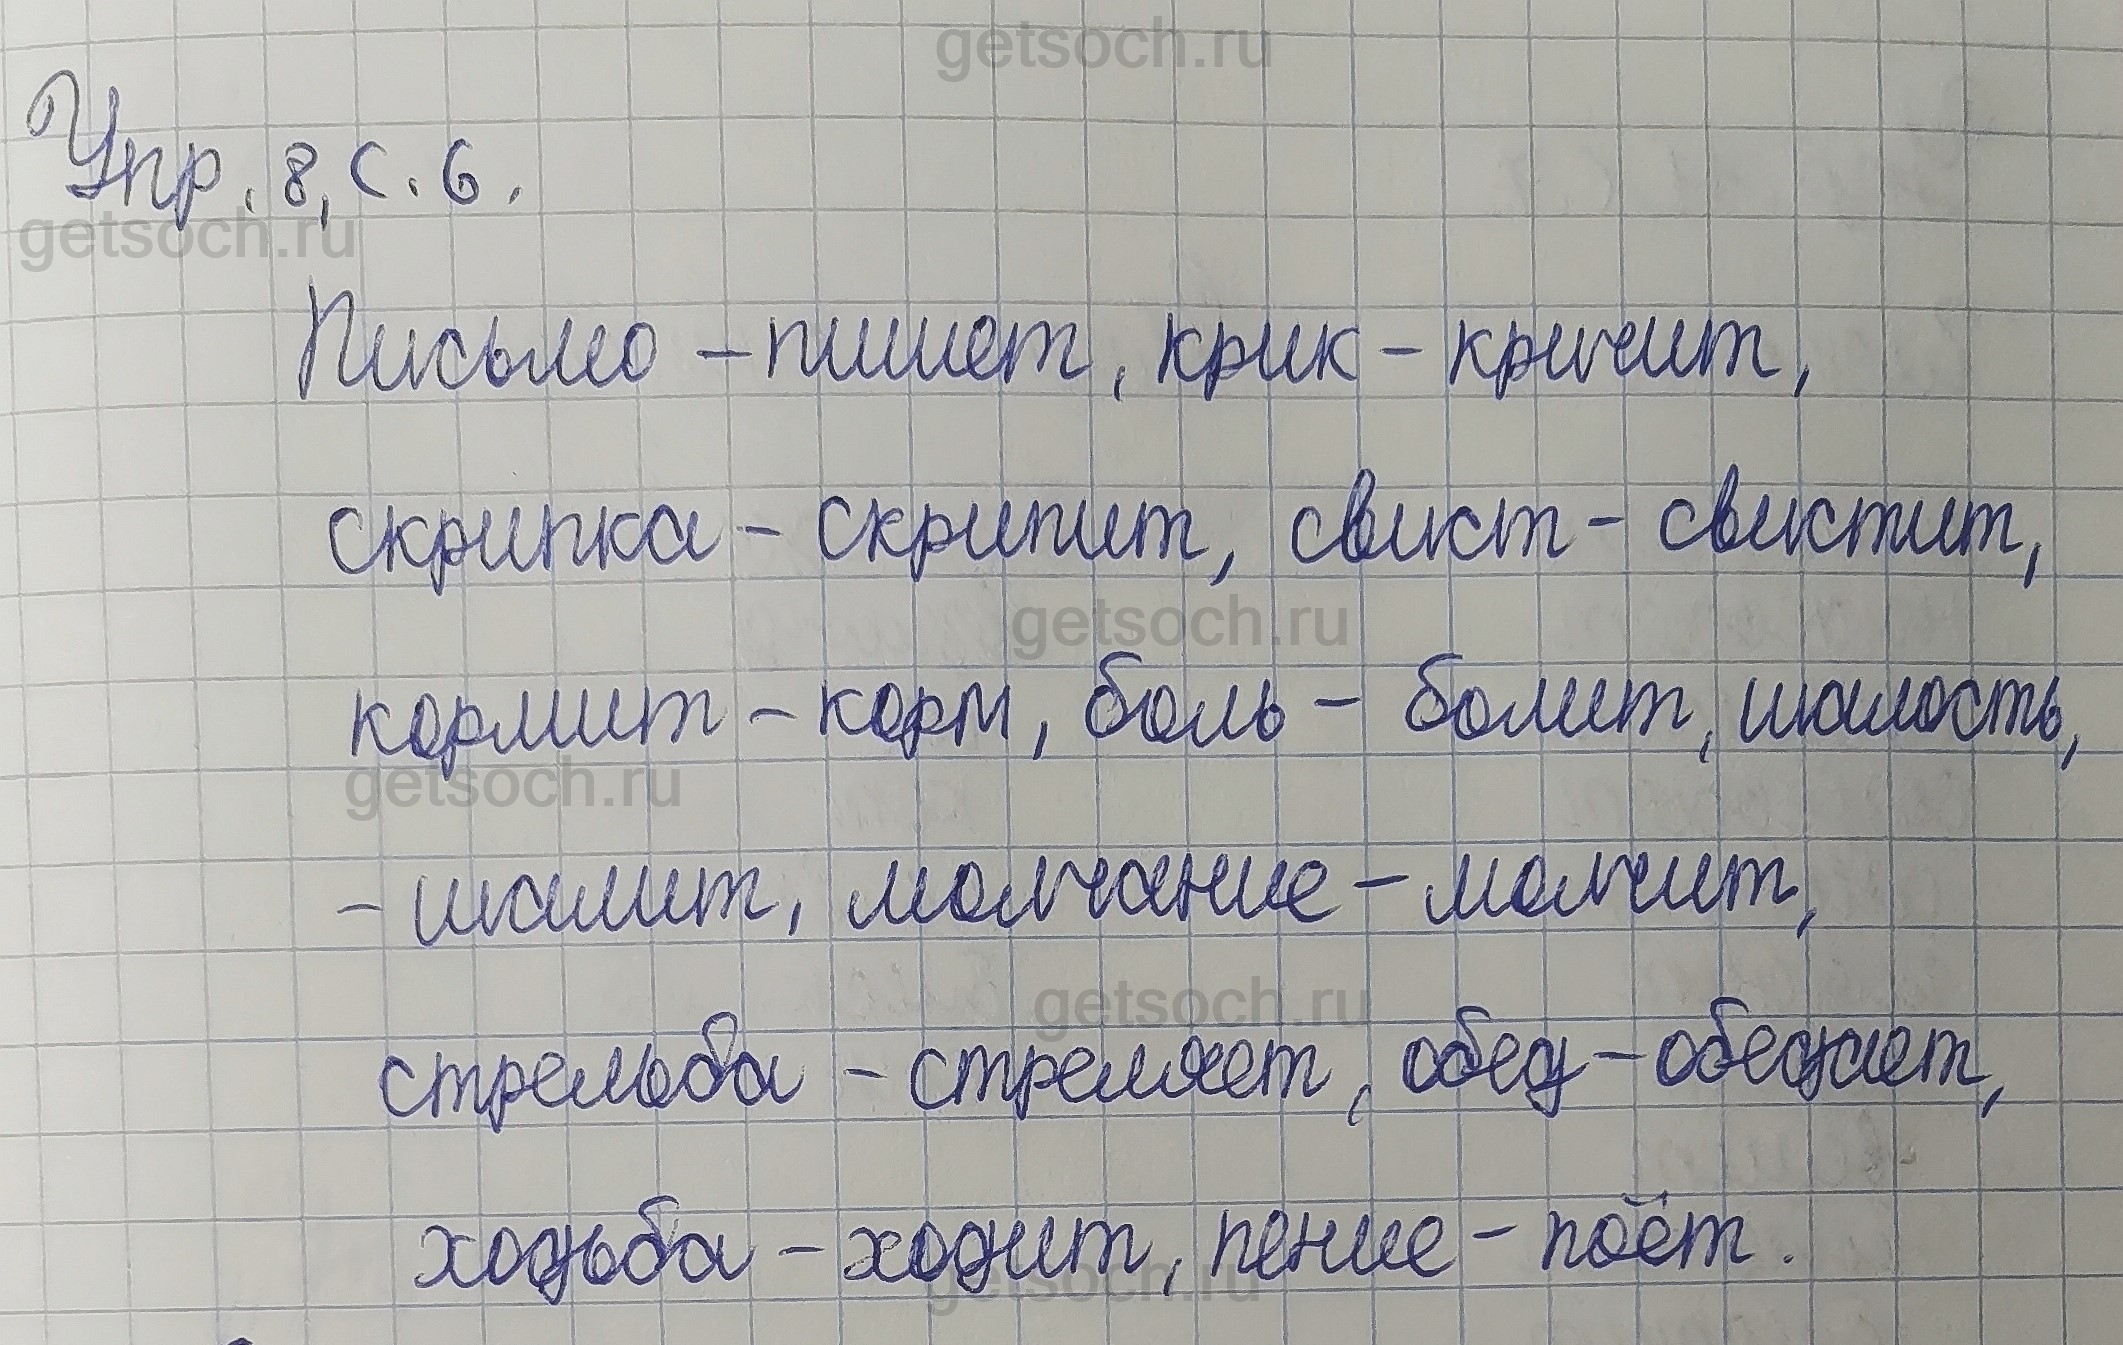 getsoch.ru
Упр. 8, с. 6.
getsoch.ru
Письмо – пишет, крик – кричит,
скрипка – скрипит, свист – свистит,
getsoch.ru
кормит – корм, боль – болит, шалость,
getsoch.ru
– шалит, молчание – молчит,
getsoch.ru
стрельба – стреляет, обед – обедает,
ходьба – ходит, пение – поёт.
getsoch.ru